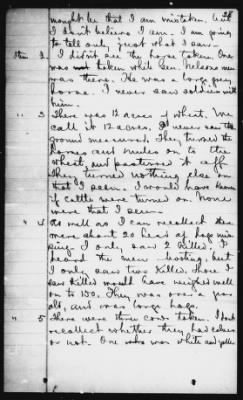 28
mought be that I am mistaken. But
I don't believe I am. I am going
to tell only just what I saw.
Item 1. I didn't see the horse taken. One
was not taken while Gen. Nelsons men
was there. He was a large grey
horse. I never saw soldiers with
him.
" 2 There was 12 acres of wheat. We
call it 12 acres. I never saw the
ground measured. They turned the
horses and mules on to the
wheat and pastured it off.
They turned nothing else on
that I seen. I would have known
if cattle were turned on. None
were that I seen.
" 3 As well as I can recollect there
were about 20 head of hogs mis
sing. I only saw 2 killed. I
heard the men shooting, but
I only saw two killed. Those I
saw killed would have weighed well
on to 150. They was over a year
old, and was large hogs.
" 5 There were three cows taken. I don't
recollect whether they had calves
or not. One was white and